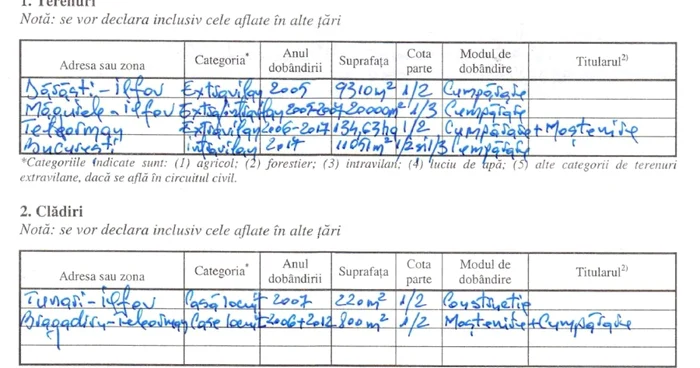 1. Terenuri
Notă: se vor declara inclusiv cele aflate în alte țări
Adresa sau zona Categoria* Anul dobândirii Suprafața Cota parte Modul de dobândire Titularul2)
Dărăști-Ilfov Extravilan 2005 9310m² 1/2 Cumpărare
Măgurele-Ilfov Extra/intravilan 2005-2007 20000m² 1/3 Cumpărare
Teleorman Extravilan 2006-2017 134,63ha 1/2 Cumpărare+Moștenire
București intravilan 2017 1/2 și 1/3 Cumpărare
*Categoriile indicate sunt: (1) agricol; (2) forestier; (3) intravilan; (4) luciu de apă; (5) alte categorii de terenuri
extravilane, dacă se află în circuitul civil.
2. Clădiri
Notă: se vor declara inclusiv cele aflate în alte țări
Adresa sau zona Categoria* Anul dobândirii Suprafața Cota parte Modul de dobândire Titularul2)
Tunari-Ilfov Casă locuit 2007 220m² 1/2 Construcție
Bragadiru-Teleorman Case locuit 2006+2012 800m² 1/2 Moștenire+Cumpărare